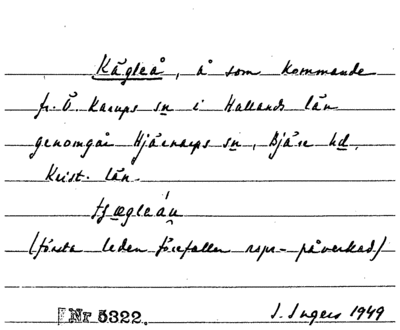 Kägleå, å som kommande
fr. Ö. Karups sn i Hallands län
genomgår Hjärnarps sn, Bjäre hd,
Krist. län.
(första leden förefaller rspr-påverkad)
Nr 5322. I. Ingers 1949